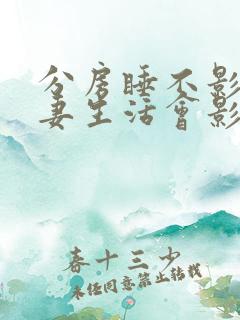 分房睡不影
妻生活会影
春十三少
未经同意禁止转载